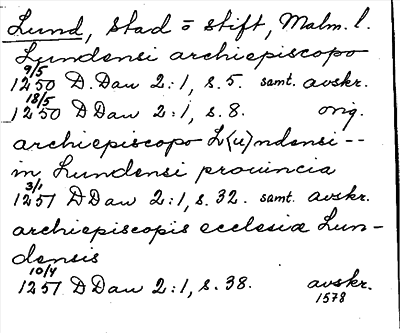 Lund, Stad o Stift, Malm. l.
Lundensi archiepiscopo
9/5
1250 D. Dan 2:1, s. 5. samt. avskr.
18/5
1250 D Dan 2:1, s. 8. orig.
archiepiscopo L(u)ndensi --
in Lundensi prouincia
3/1
1251 D Dan 2:1, s. 32. samt. avskr.
archiepiscopis ecclesiæ Lun-
densis
10/4
1251 D Dan 2:1, s. 38. avskr.
1578